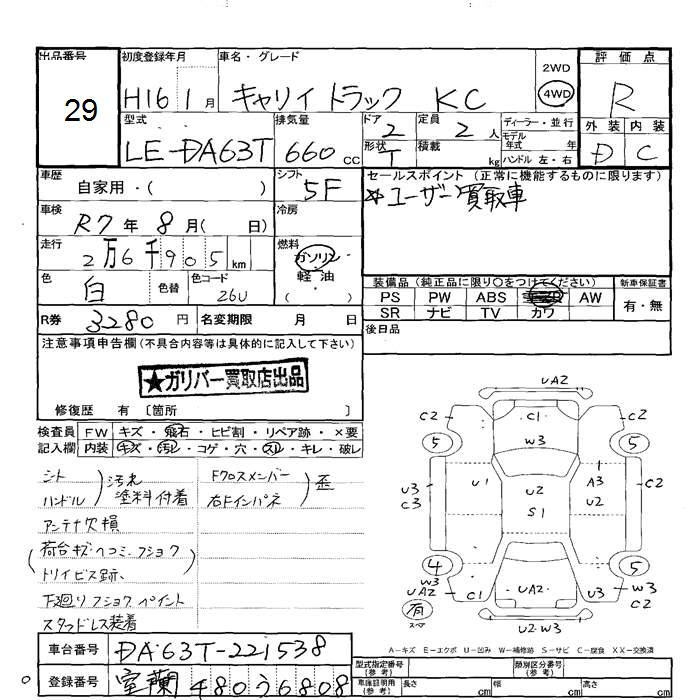 出品番号
29
初度登録年月
H16 1月
車名・グレード
キャリイ トラック KC
2WD
4WD
評価点
R
外装 内装
D C
型式
LE-DA63T
排気量
660 cc
ドア
2
形状
T
定員
2 人
積載
kg
ディーラー・並行
モデル年式 年
ハンドル 左・右
車歴
自家用・( )
シフト
5F
車検
R7年 8月( 日)
冷房
走行
2万6千905km
燃料
ガソリン
軽油
( ・ )
色
白
色替
色コード
26U
R券 3280 円
名変期限 月 日
セールスポイント (正常に機能するものに限ります)
※ユーザー買取車
装備品 (純正品に限り○をつけてください)
PS PW ABS AW
SR ナビ TV カワ
新車保証書
有・無
後日品
注意事項申告欄 (不具合内容等は具体的に記入して下さい)
★ガリバー買取店出品
修復歴 有 〔箇所 〕
検査員記入欄
FW キズ・飛石・ヒビ割・リペア跡・×要
内装 キズ・汚レ・コゲ・穴・スレ・キレ・破レ
シート
ハンドル
汚れ
塗料付着
Fクロスメンバー
右Fインパネ
歪
アンテナ欠損
荷台キズ・ヘコミ・フショク
トリイビス跡、
下廻りフショクペイント
スタッドレス装着
UA2
C2 C1 C2
5 W3 5
U1 U2 A3
U3 C2
C3 S1 U2
4 5
W3 UA2 C1 UA2 U3 W3 C2
有
スペア
U2・W3
A－キズ E－エクボ U－凹み W－補修跡 S－サビ C－腐食 XX－交換済
車台番号
DA63T-221538
登録番号
室蘭 480 う 6808
型式指定番号
(参考)
類別区分番号
(参考)
車庫証明用
(参考)
長さ cm
幅 cm
高さ cm